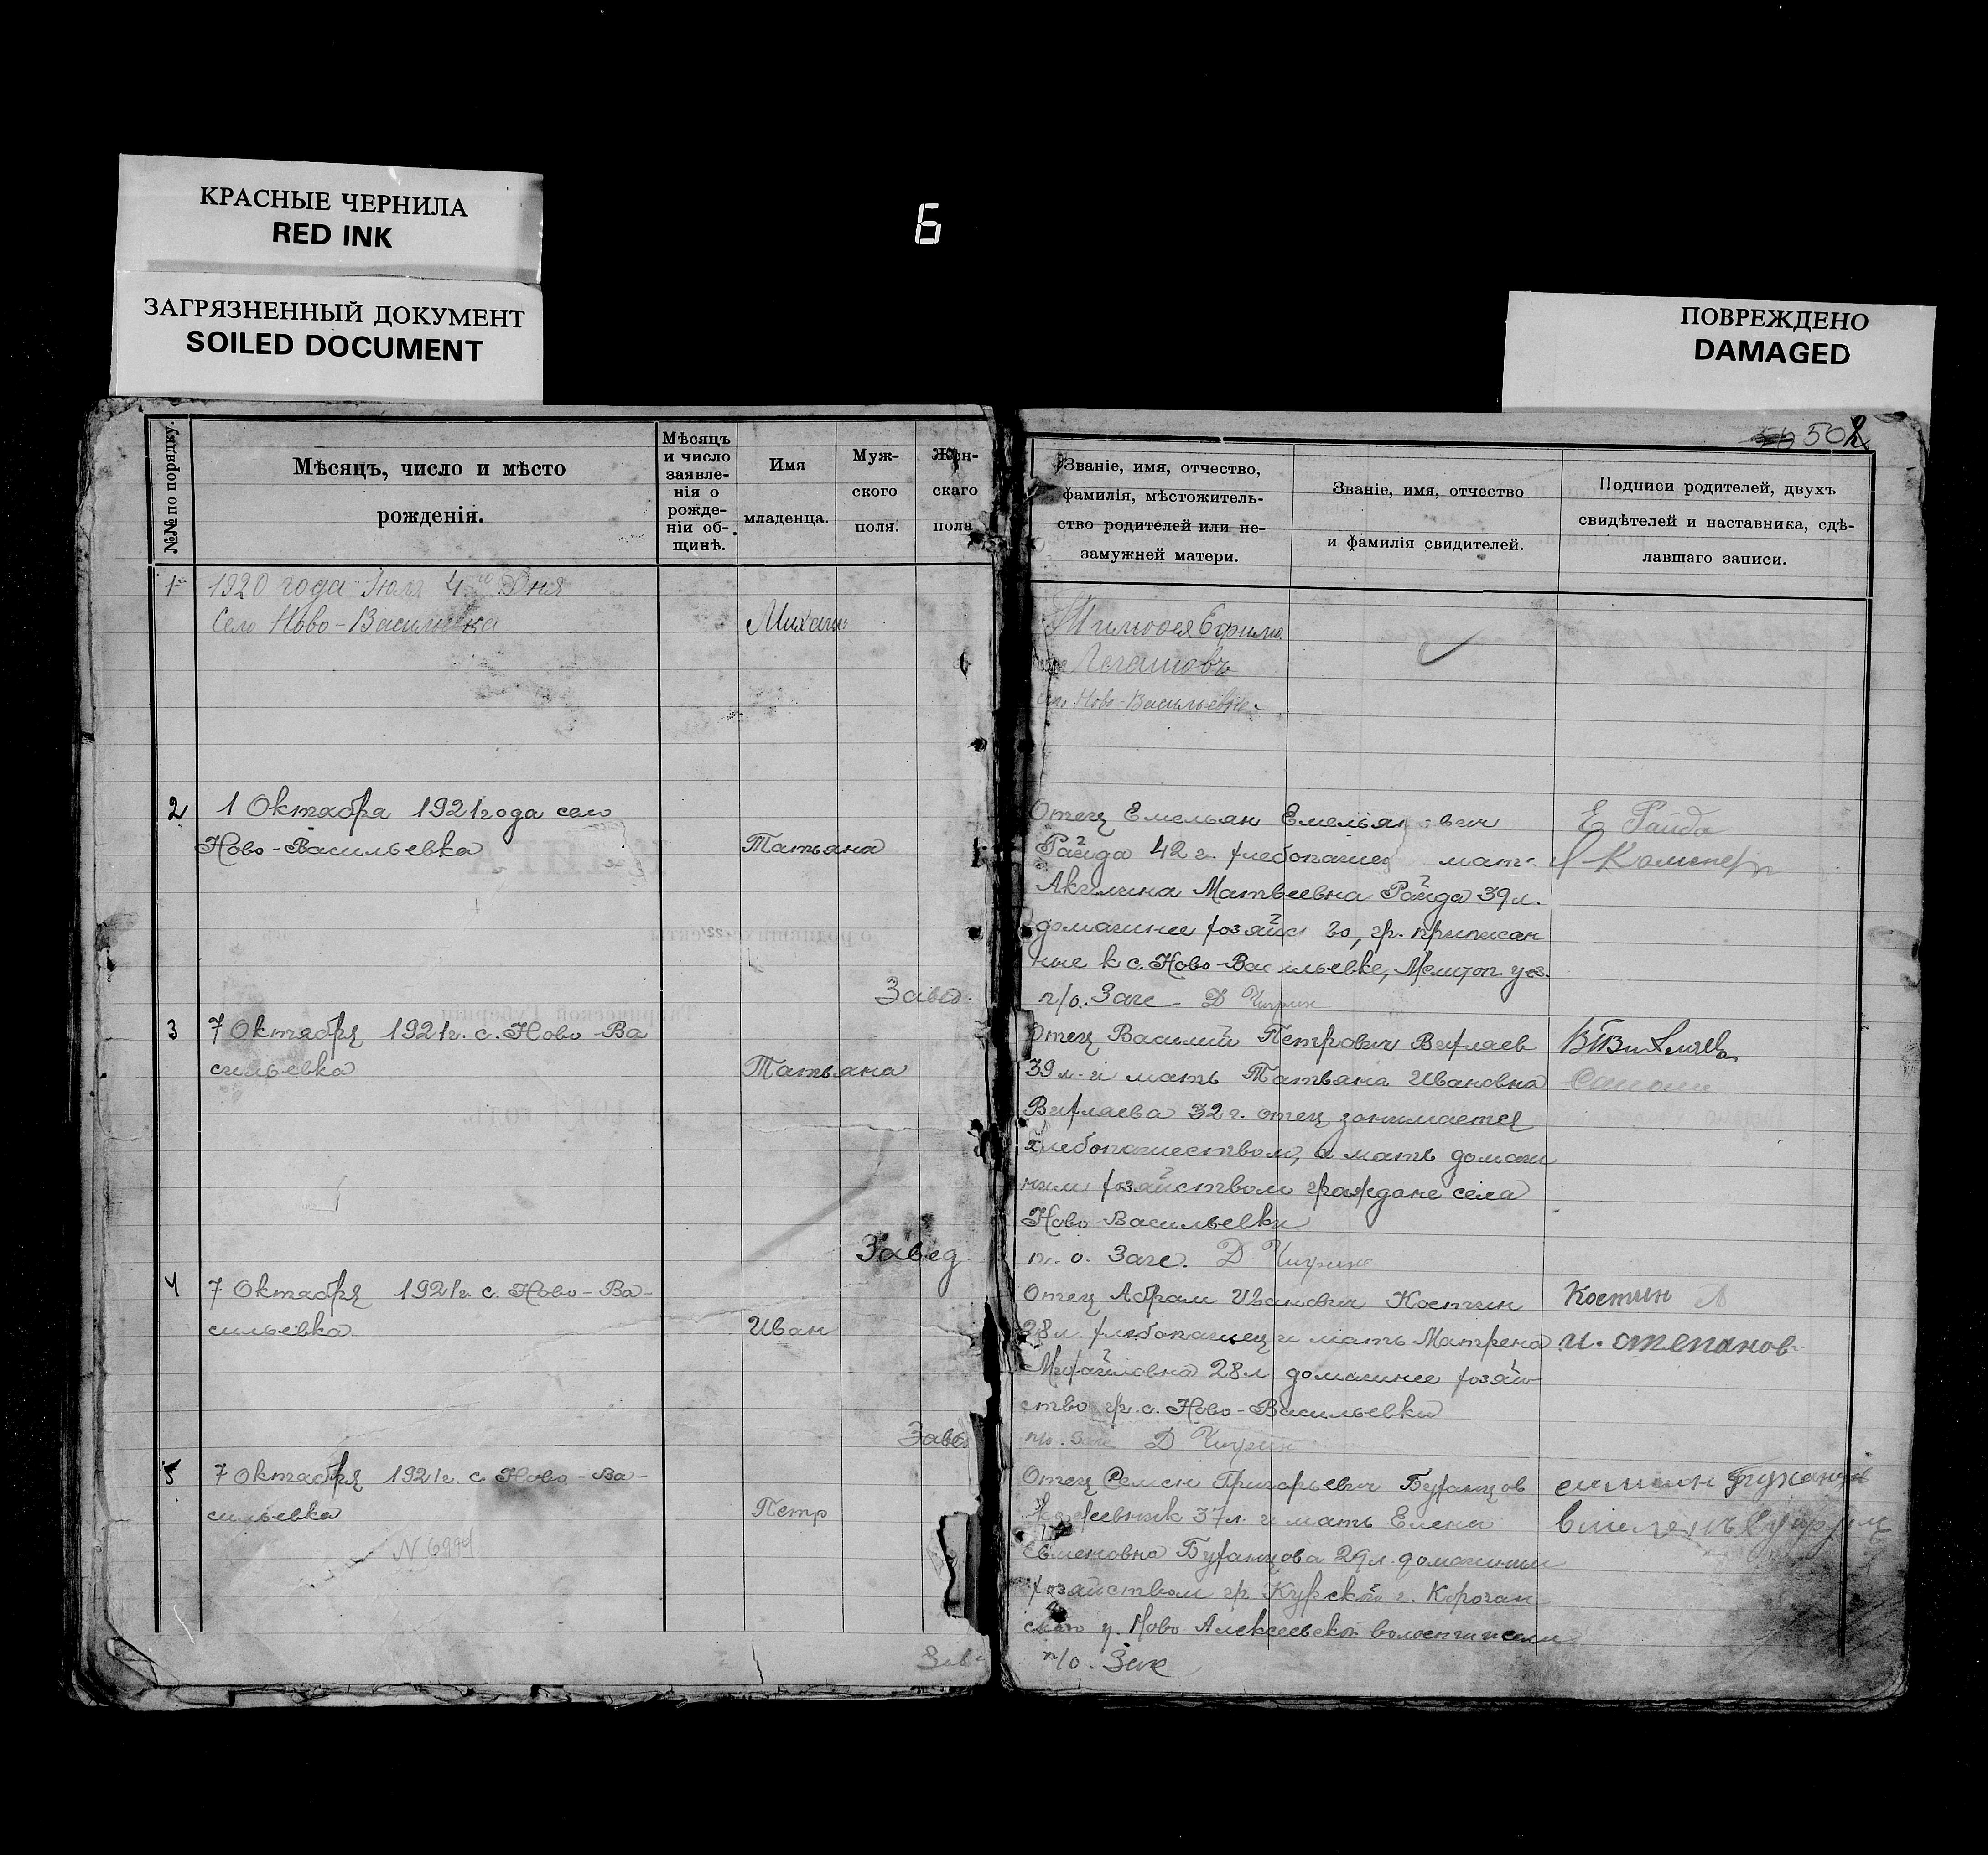 КРАСНЫЕ ЧЕРНИЛА
RED INK
ЗАГРЯЗНЕННЫЙ ДОКУМЕНТ
SOILED DOCUMENT
6
ПОВРЕЖДЕНО
DAMAGED
50
№№ по порядку.
Мѣсяцъ, число и мѣсто
рожденія.
Мѣсяцъ
и число
заявле-
нія о
рожде-
ніи об-
щинѣ.
Имя
младенца.
Муж-
ского
поля.
Жен-
скаго
пола
Званіе, имя, отчество,
фамилія, мѣстожитель-
ство родителей или не-
замужней матери.
Званіе, имя, отчество
и фамилія свидителей.
Подписи родителей, двухъ
свидѣтелей и наставника, сдѣ-
лавшаго записи.
1
1920 года Июля 4го Дня
Село Ново-Васильевка
Михаил
Тимофея Ефимо
Логашовъ
село Ново-Васильевке
2
1 Октября 1921 года село
Ново-Васильевка
Татьяна
Завед.
Отец Емельян Емельян вич
Гайда 42 г. хлебопашец мать
Акилина Матвеевна Гайда 39 л.
домашнее хозяйс во, гр. приписан
ные к с. Ново-Васильевке, Мелитоп уез.
п/о. Загс Д Чирин
Е Гайда
3
7 Октября 1921 г. с. Ново-Ва
сильевка
Татьяна
Завед
Отец Василий Петрович Вихляев
39 л. и мать Татьяна Ивановна
Вихляева 32 г. отец занимается
хлебопашеством, а мать домаш
ним хозяйством граждане села
Ново Васильевки
п. о. Загс. Д Чирин
В Вихляевъ
4
7 Октября 1921 г. с. Ново-Ва-
сильевка
Иван
Завед
Отец Абрам Иванович Костин
28 л. хлебопашец и мать Матрена
Михайловна 28 л домашнее хозяй-
ство гр. с. Ново-Васильевки
п/о. Загс Д Чирин
Костин А
и. степанов
5
7 Октября 1921 г. с Ново-Ва-
сильевка
Петр
Зав
Отец Семен Григорьевич Буханцов
Кожевник 37 л. и мать Елена
Семеновна Буханцова 29 л. домашним
хозяйством гр Курской г. Корочан
ского у. Ново Алексеевской волости и села
п/о. Загс
семен Буханцов